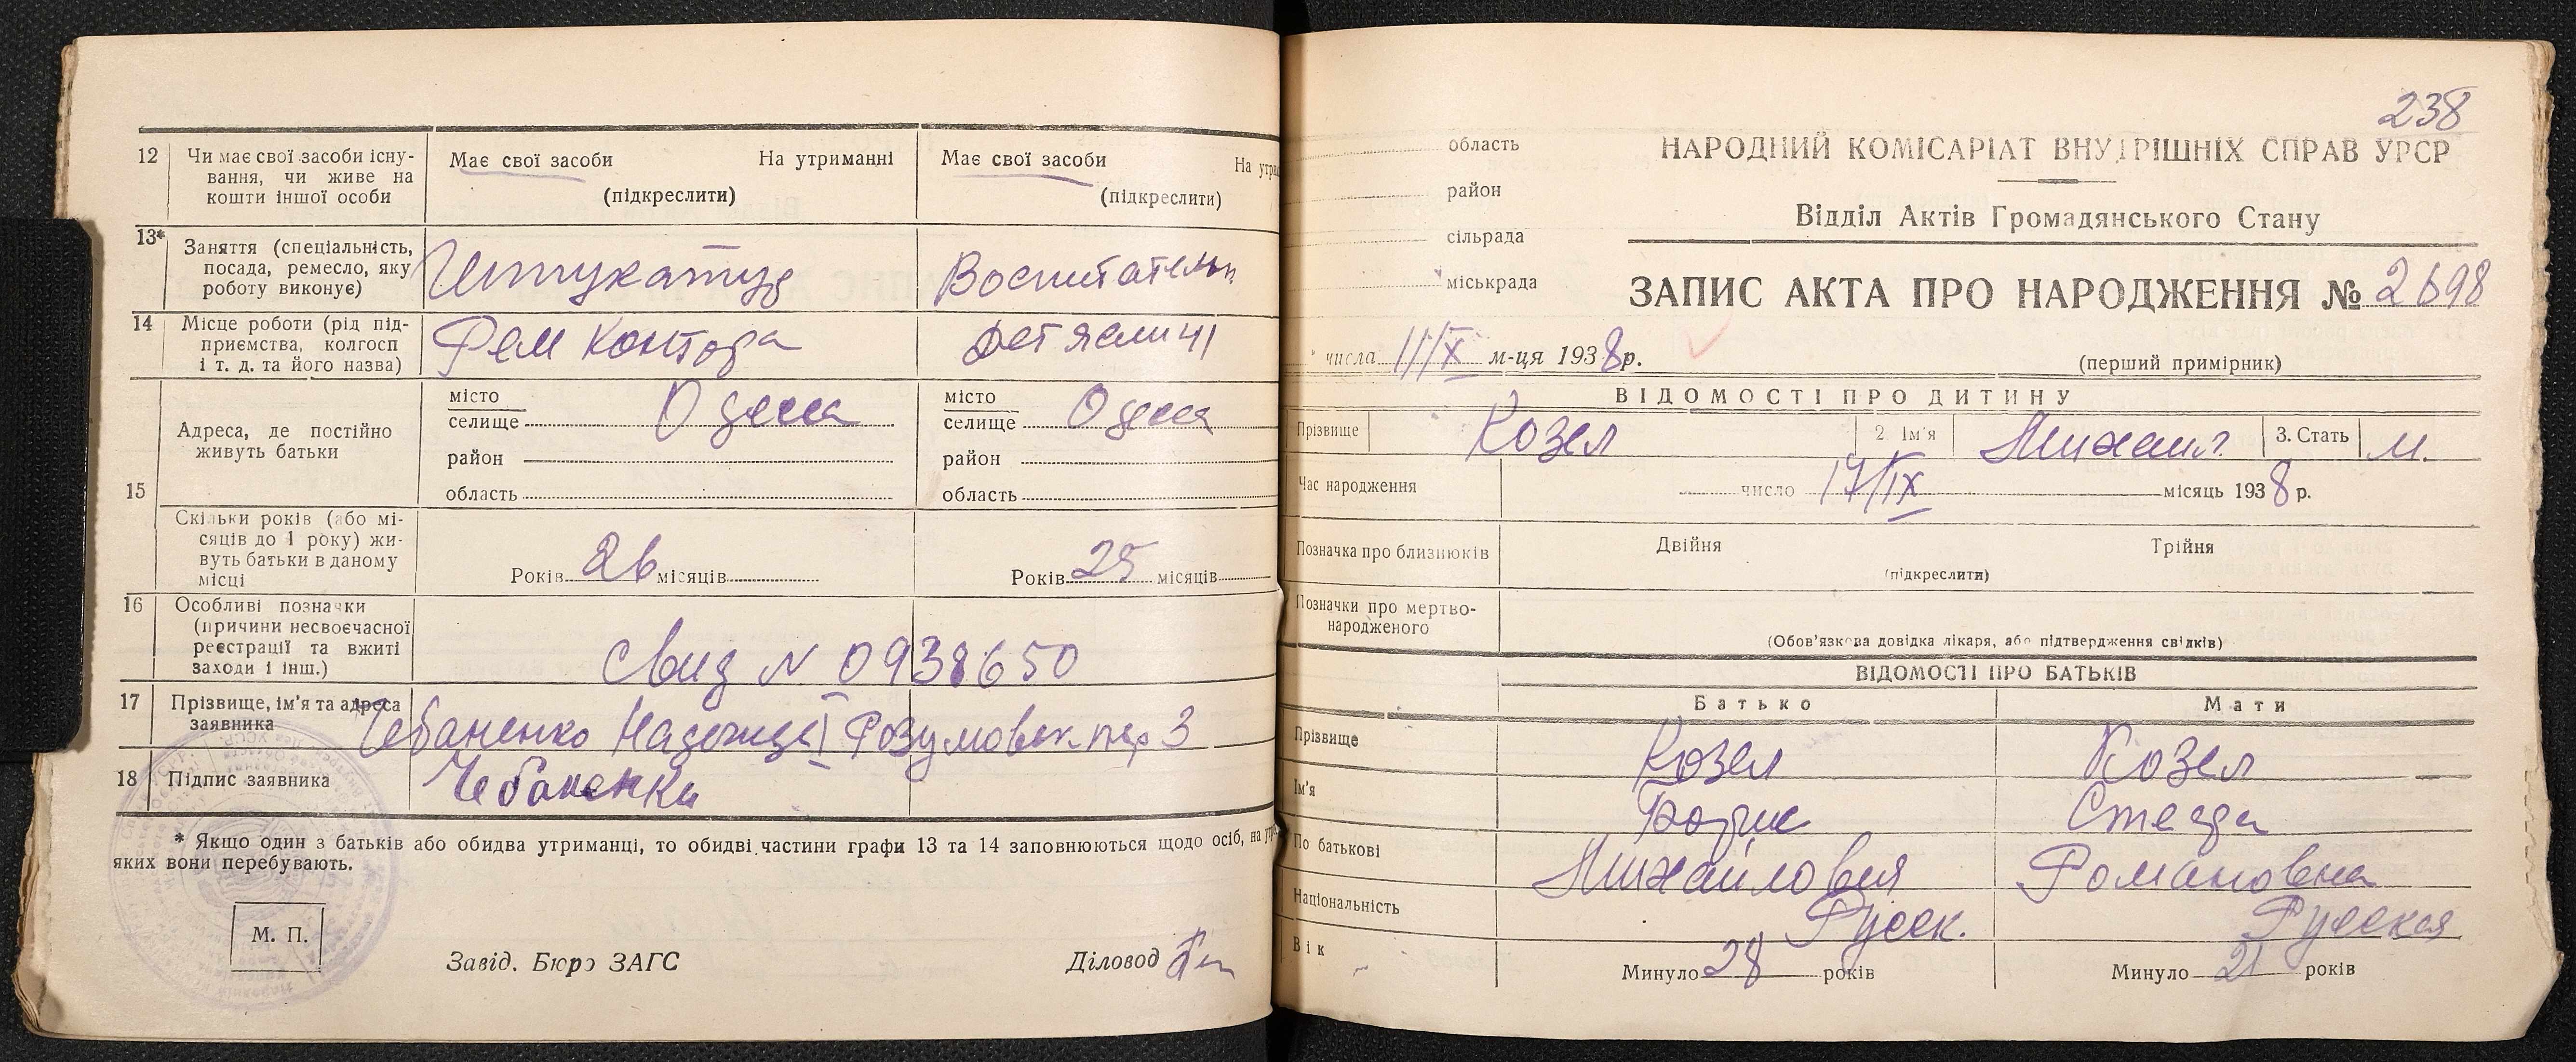 12 Чи має свої засоби існу-
вання, чи живе на
кошти іншої особи
Має свої засоби На утриманні
(підкреслити)
Має свої засоби На утри
(підкреслити)
13* Заняття (спеціальність,
посада, ремесло, яку
роботу виконує)
Штукатур
Воспитательн.
14 Місце роботи (рід під-
приємства, колгосп
і т. д. та його назва)
Рем контора
Дет ясли 41
15 Адреса, де постійно
живуть батьки
місто
селище Одесса
район
область
місто
селище Одесса
район
область
Скільки років (або мі-
сяців до 1 року) жи-
вуть батьки в даному
місці
Років 26 місяців
Років 25 місяців
16 Особливі позначки
(причини несвоєчасної
реєстрації та вжиті
заходи і інш.)
Свид N 0938650
17 Прізвище, ім'я та адреса
заявника
Чебаненко Надежда Розумовск. пер 3
18 Підпис заявника
Чебаненко
* Якщо один з батьків або обидва утриманці, то обидві частини графи 13 та 14 заповнюються щодо осіб, на утри-
яких вони перебувають.
М. П.
Завід. Бюро ЗАГС
Діловод
238
область
район
сільрада
міськрада
НАРОДНИЙ КОМІСАРІАТ ВНУТРІШНІХ СПРАВ УРСР
Відділ Актів Громадянського Стану
ЗАПИС АКТА ПРО НАРОДЖЕННЯ №
числа 11/X м-ця 1938р.
(перший примірник)
ВІДОМОСТІ ПРО ДИТИНУ
Прізвище Козел 2 Ім'я Михаил 3. Стать м.
Час народження число 17/IX місяць 1938 р.
Позначка про близнюків Двійня Трійня
(підкреслити)
Позначки про мертво-
народженого
(Обов'язкова довідка лікаря, або підтвердження свідків)
ВІДОМОСТІ ПРО БАТЬКІВ
Батько Мати
Прізвище Козел Козел
Ім'я Борис
По батькові Михайлович Романовна
Національність Русск. Русская
Вік Минуло 28 років Минуло 21 років